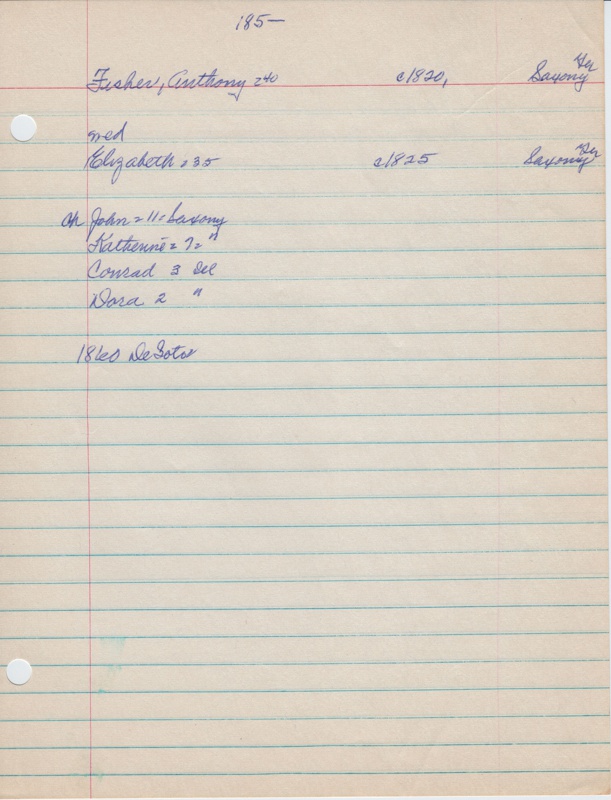 185-
Fisher, Anthony = 40 c1820, Saxony Ger
med
Elizabeth = 35 c1825 Saxony Ger
ch John = 11 = Saxony
Katherine = 7 = "
Conrad 3 Ill
Dora 2 "
1860 DeSoto